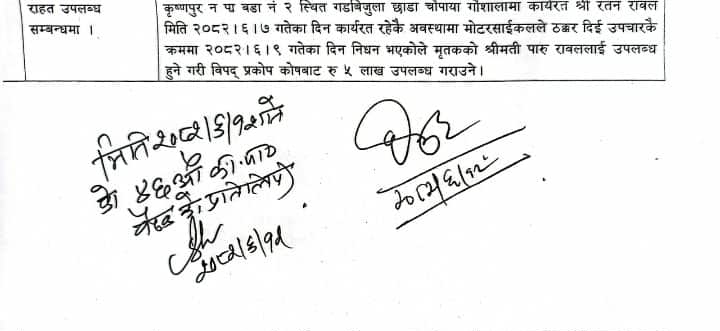 राहत उपलब्ध
सम्बन्धमा ।
कृष्णपुर न पा वडा नं २ स्थित गडबिजुला छाडा चौपाया गोशालामा कार्यरत श्री रतन रावल
मिति २०८२।६।७ गतेका दिन कार्यरत रहेकै अवस्थामा मोटरसाईकलले ठक्कर दिई उपचारकै
क्रममा २०८२।६।९ गतेका दिन निधन भएकोले मृतकको श्रीमती पारु रावललाई उपलब्ध
हुने गरी विपद् प्रकोप कोषबाट रु ५ लाख उपलब्ध गराउने।
मिति २०८२/६/१२ गते
को ४६औं का.पा
बैठक को प्रतिलिपी
२०८२/६/१२